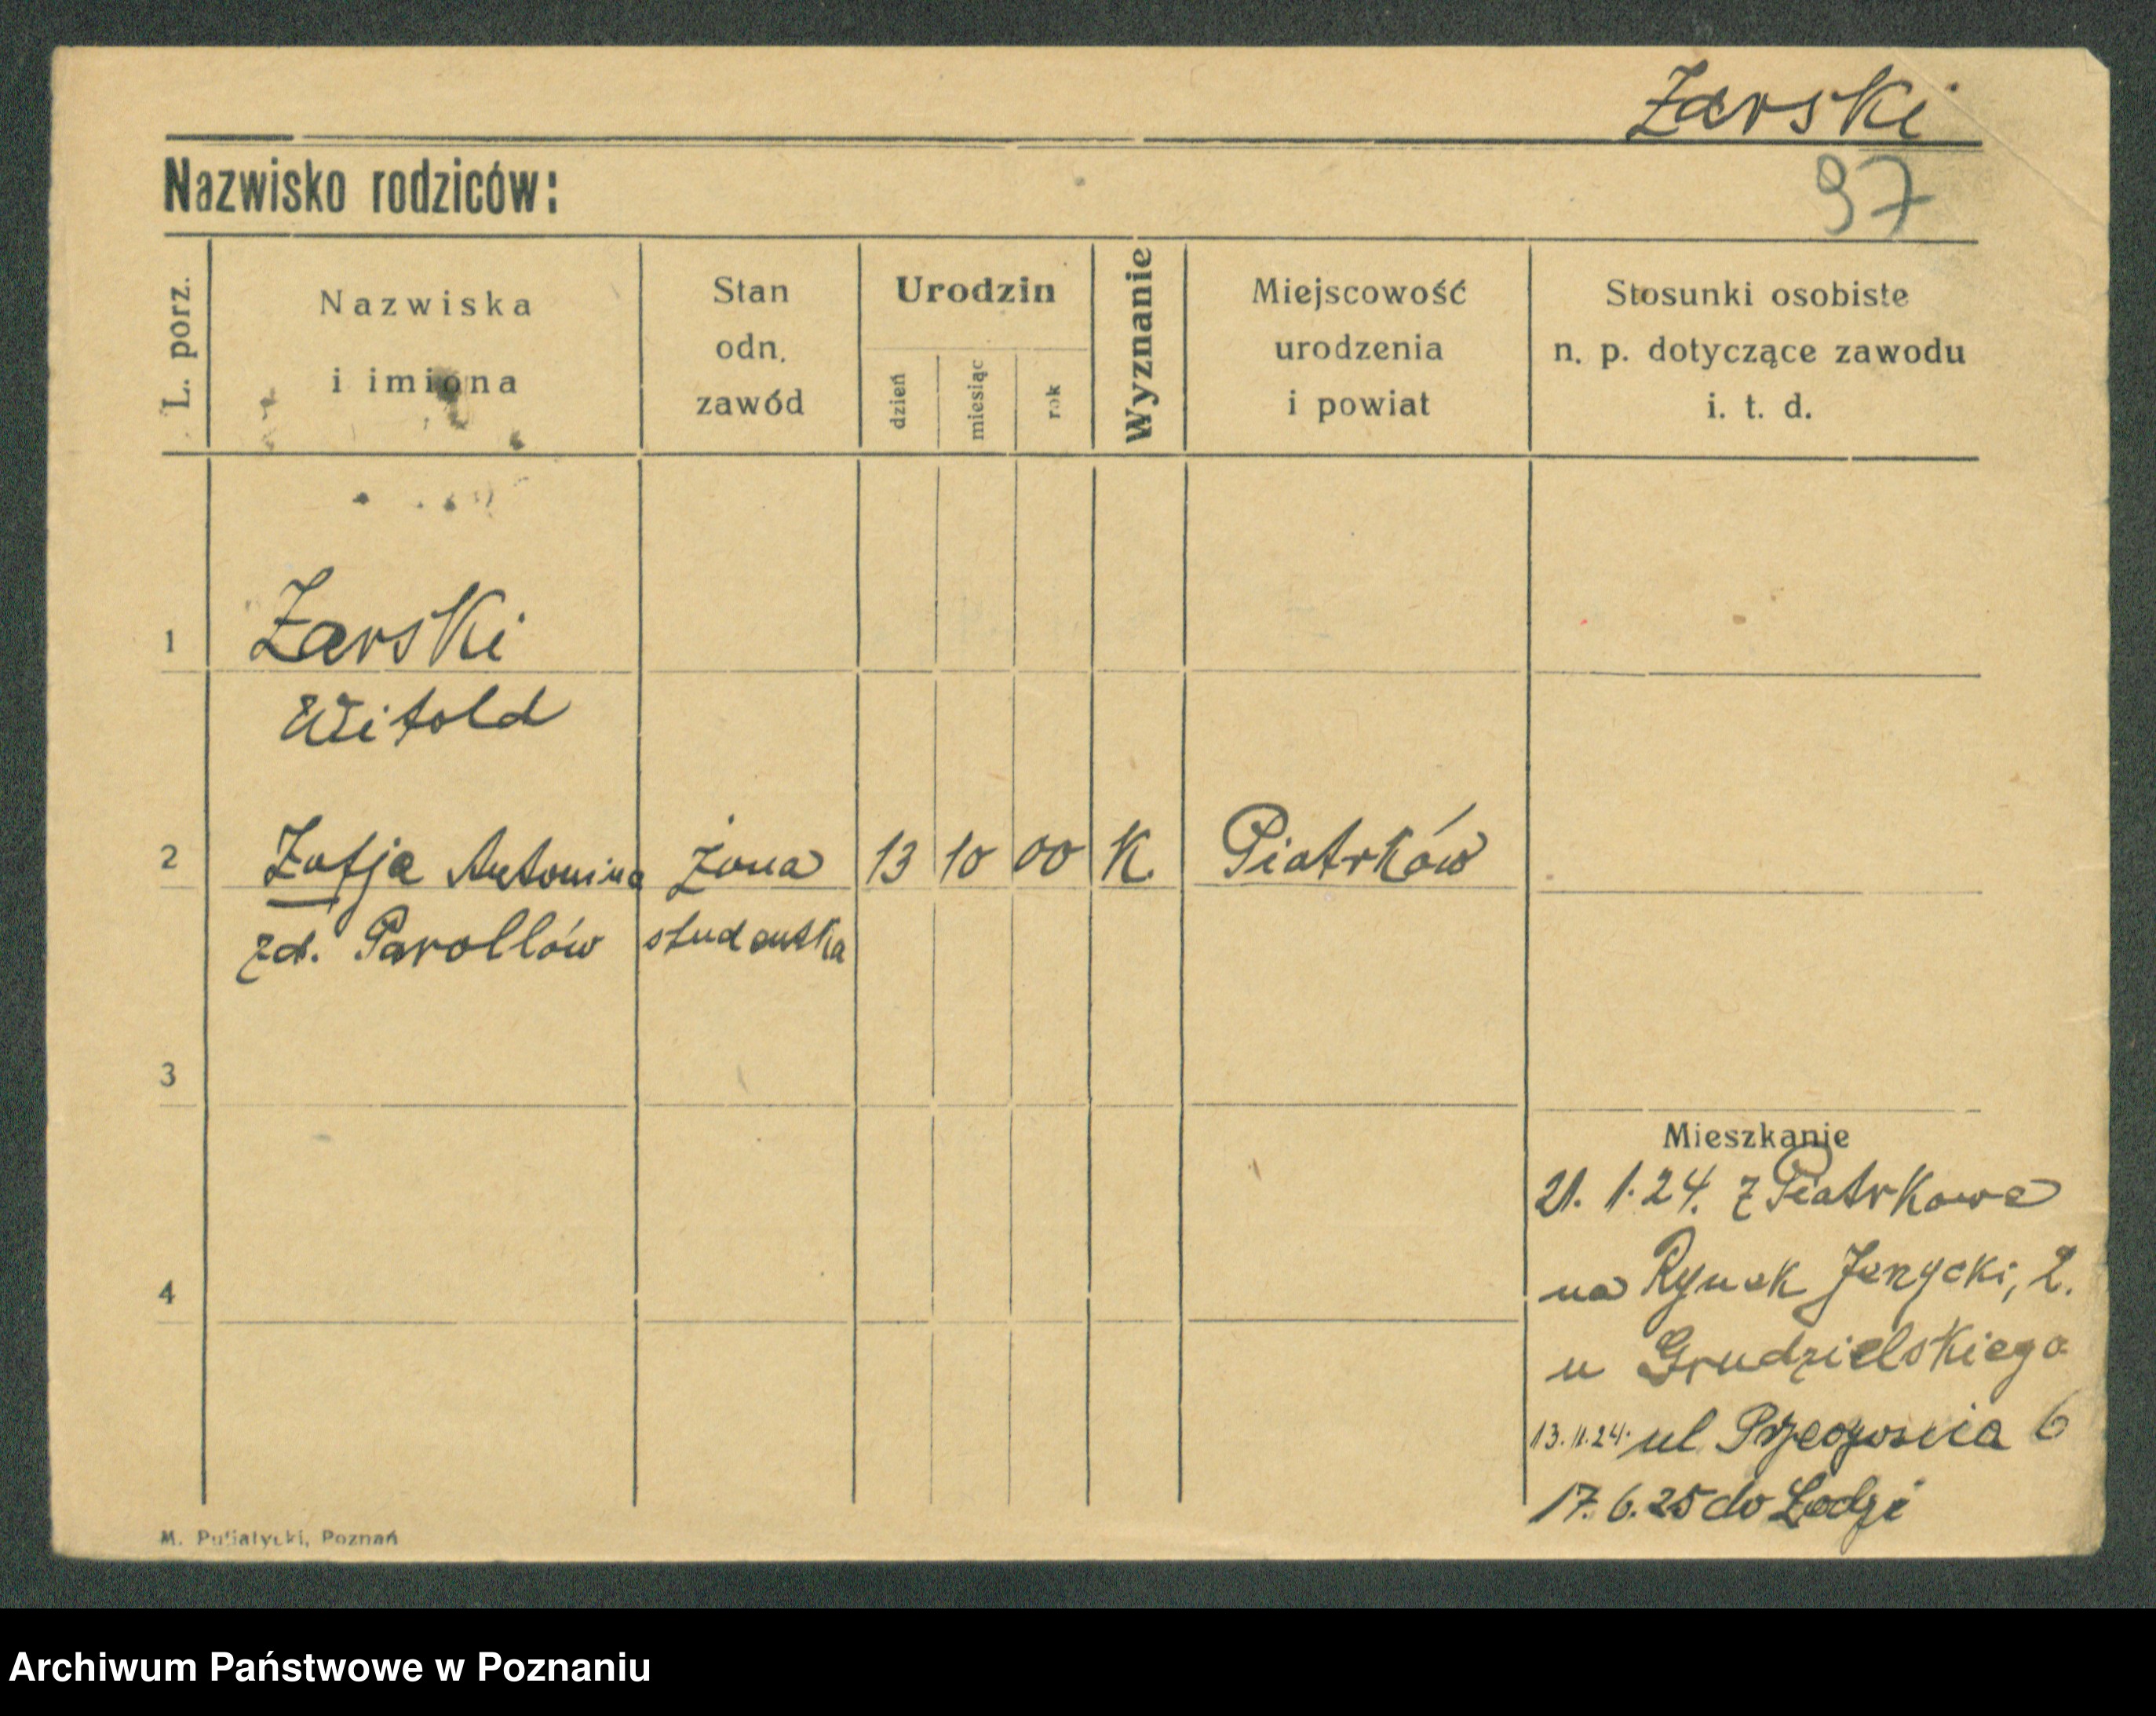 Żarski
97
Nazwisko rodziców:
L. porz.
Nazwiska
i imiona
Stan
odn.
zawód
Urodzin
dzień
miesiąc
rok
Wyznanie
Miejscowość
urodzenia
i powiat
Stosunki osobiste
n. p. dotyczące zawodu
i. t. d.
1 Żarski
Witold
2 Zofja Antonina żona 13 10 00 K. Piotrków
zd. Parollów studentka
3
Mieszkanie
21. 1. 24. z Piotrkowa
4
na Rynek Jeżycki, 2.
u Grudzielskiego
13. 11. 24. ul 6
17. 6. 25 do Łodzi
M. Putiatycki, Poznań
Archiwum Państwowe w Poznaniu